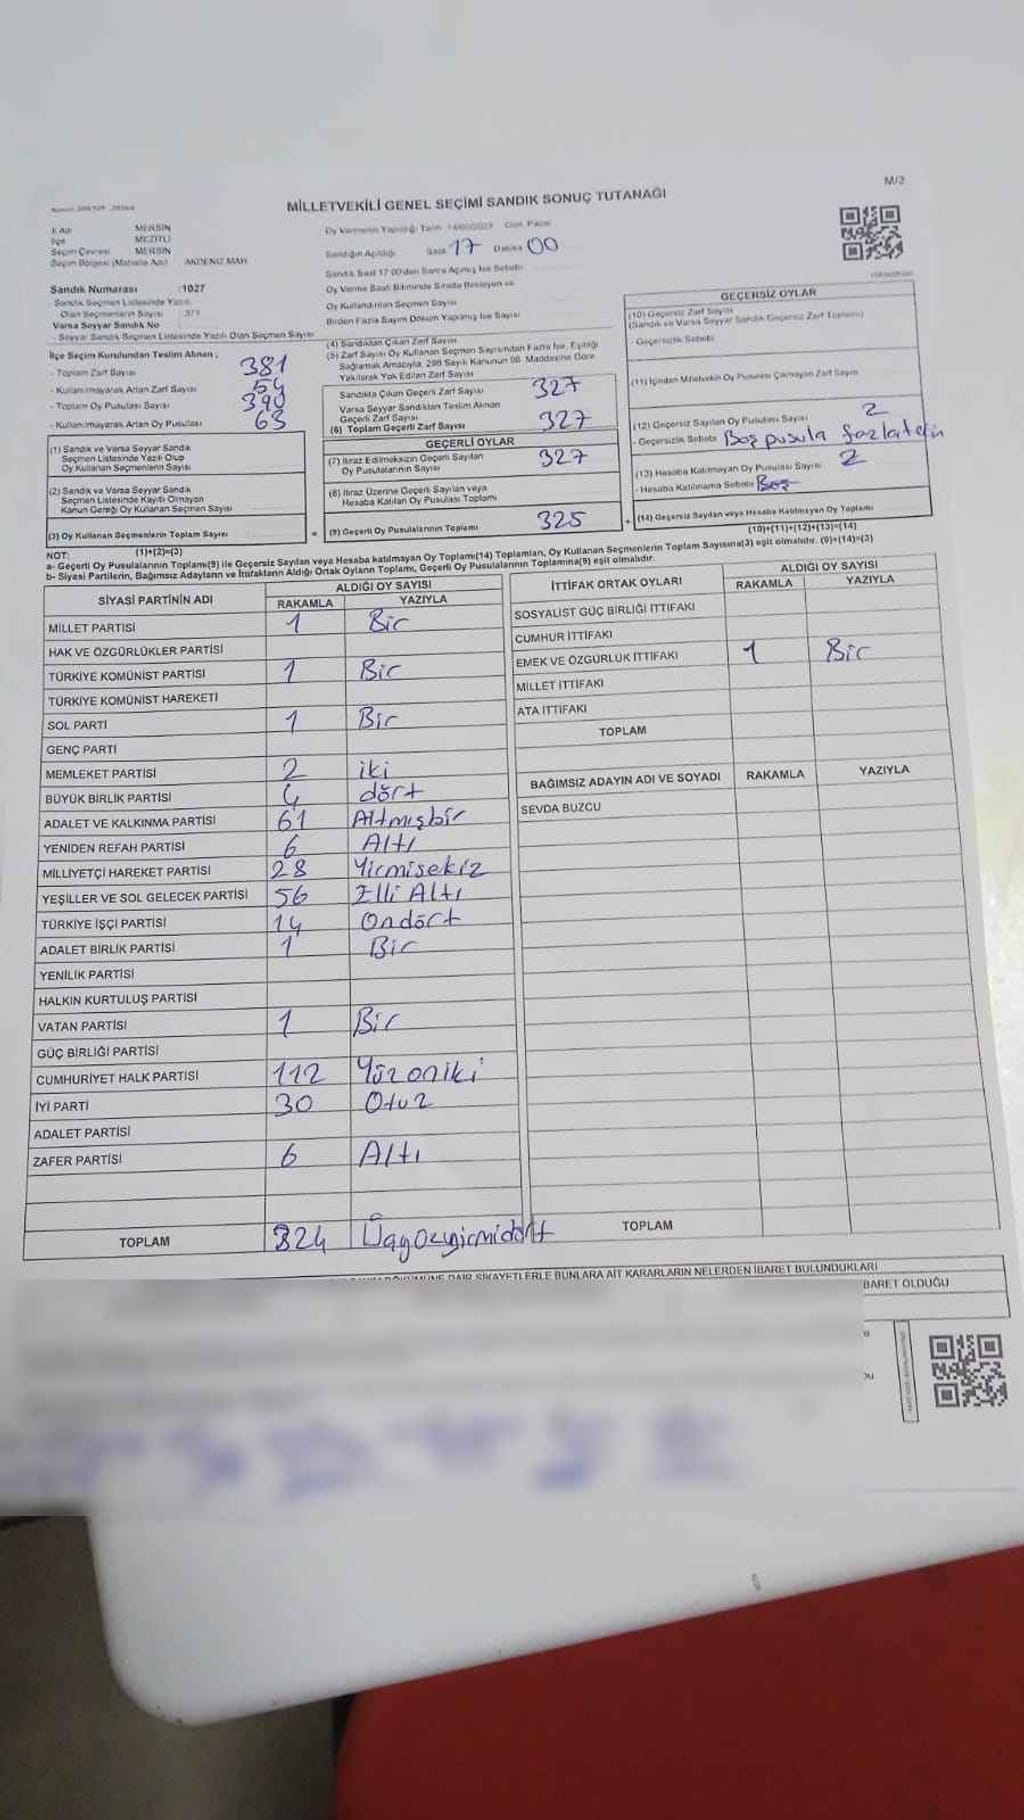 M/2
MİLLETVEKİLİ GENEL SEÇİMİ SANDIK SONUÇ TUTANAĞI
İl Adı MERSİN
İlçe MEZİTLİ
Seçim Çevresi MERSİN
Seçim Bölgesi (Mahalle Adı) AKDENİZ MAH.
Sandık Numarası :1027
Sandık Seçmen Listesinde Yazılı
Olan Seçmenlerin Sayısı : 373
Varsa Seyyar Sandık No
- Seyyar Sandık Seçmen Listesinde Yazılı Olan Seçmen Sayısı
İlçe Seçim Kurulundan Teslim Alınan ;
- Toplam Zarf Sayısı 381
- Kullanılmayarak Artan Zarf Sayısı 54
- Toplam Oy Pusulası Sayısı 390
- Kullanılmayarak Artan Oy Pusulası 63
(1) Sandık ve Varsa Seyyar Sandık
Seçmen Listesinde Yazılı Olup
Oy Kullanan Seçmenlerin Sayısı
(2) Sandık ve Varsa Seyyar Sandık
Seçmen Listesinde Kayıtlı Olmayan
Kanun Gereği Oy Kullanan Seçmen Sayısı
(3) Oy Kullanan Seçmenlerin Toplam Sayısı
(1)+(2)=(3)
Oy Vermenin Yapıldığı Tarih 14/05/2023 Gün Pazar
Sandığın Açıldığı Saat 17 Dakika 00
Sandık Saat 17.00'dan Sonra Açılmış İse Sebebi
Oy Verme Saati Bitiminde Sırada Bekleyen ve
Oy Kullandırılan Seçmen Sayısı
Birden Fazla Sayım Döküm Yapılmış İse Sayısı
(4) Sandıktan Çıkan Zarf Sayısı
(5) Zarf Sayısı Oy Kullanan Seçmen Sayısından Fazla İse, Eşitliği
Sağlamak Amacıyla, 298 Sayılı Kanunun 98. Maddesine Göre
Yakılarak Yok Edilen Zarf Sayısı
Sandıkta Çıkan Geçerli Zarf Sayısı 327
Varsa Seyyar Sandıktan Teslim Alınan
Geçerli Zarf Sayısı
(6) Toplam Geçerli Zarf Sayısı 327
GEÇERLİ OYLAR
(7) İtiraz Edilmeksizin Geçerli Sayılan
Oy Pusulalarının Sayısı 327
(8) İtiraz Üzerine Geçerli Sayılan veya
Hesaba Katılan Oy Pusulası Toplamı
= (9) Geçerli Oy Pusulalarının Toplamı 325
GEÇERSİZ OYLAR
(10) Geçersiz Zarf Sayısı
(Sandık ve Varsa Seyyar Sandık Geçersiz Zarf Toplamı)
- Geçersizlik Sebebi
(11) İçinden Milletvekili Oy Pusulası Çıkmayan Zarf Sayısı
(12) Geçersiz Sayılan Oy Pusulası Sayısı 2
- Geçersizlik Sebebi Boş pusula
(13) Hesaba Katılmayan Oy Pusulası Sayısı 2
- Hesaba Katılmama Sebebi Boş
+ (14) Geçersiz Sayılan veya Hesaba Katılmayan Oy Toplamı
(10)+(11)+(12)+(13)=(14)
NOT:
a- Geçerli Oy Pusulalarının Toplamı(9) ile Geçersiz Sayılan veya Hesaba katılmayan Oy Toplamı(14) Toplamları, Oy Kullanan Seçmenlerin Toplam Sayısına(3) eşit olmalıdır. (9)+(14)=(3)
b- Siyasi Partilerin, Bağımsız Adayların ve İttifakların Aldığı Ortak Oyların Toplamı, Geçerli Oy Pusulalarının Toplamına(9) eşit olmalıdır.
SİYASİ PARTİNİN ADI ALDIĞI OY SAYISI
RAKAMLA YAZIYLA
MİLLET PARTİSİ 1 Bir
HAK VE ÖZGÜRLÜKLER PARTİSİ
TÜRKİYE KOMÜNİST PARTİSİ 1 Bir
TÜRKİYE KOMÜNİST HAREKETİ
SOL PARTİ 1 Bir
GENÇ PARTİ
MEMLEKET PARTİSİ 2 iki
BÜYÜK BİRLİK PARTİSİ 4 dört
ADALET VE KALKINMA PARTİSİ 61 Altmışbir
YENİDEN REFAH PARTİSİ 6 Altı
MİLLİYETÇİ HAREKET PARTİSİ 28 Yirmisekiz
YEŞİLLER VE SOL GELECEK PARTİSİ 56 Elli Altı
TÜRKİYE İŞÇİ PARTİSİ 14 Ondört
ADALET BİRLİK PARTİSİ 1 Bir
YENİLİK PARTİSİ
HALKIN KURTULUŞ PARTİSİ
VATAN PARTİSİ 1 Bir
GÜÇ BİRLİĞİ PARTİSİ
CUMHURİYET HALK PARTİSİ 112 Yüzoniki
İYİ PARTİ 30 Otuz
ADALET PARTİSİ
ZAFER PARTİSİ 6 Altı
TOPLAM 324
İTTİFAK ORTAK OYLARI ALDIĞI OY SAYISI
RAKAMLA YAZIYLA
SOSYALİST GÜÇ BİRLİĞİ İTTİFAKI
CUMHUR İTTİFAKI
EMEK VE ÖZGÜRLÜK İTTİFAKI 1 Bir
MİLLET İTTİFAKI
ATA İTTİFAKI
TOPLAM
BAĞIMSIZ ADAYIN ADI VE SOYADI RAKAMLA YAZIYLA
SEVDA BUZCU
TOPLAM
DAİR ŞİKAYETLERLE BUNLARA AİT KARARLARIN NELERDEN İBARET BULUNDUKLARI
BARET OLDUĞU